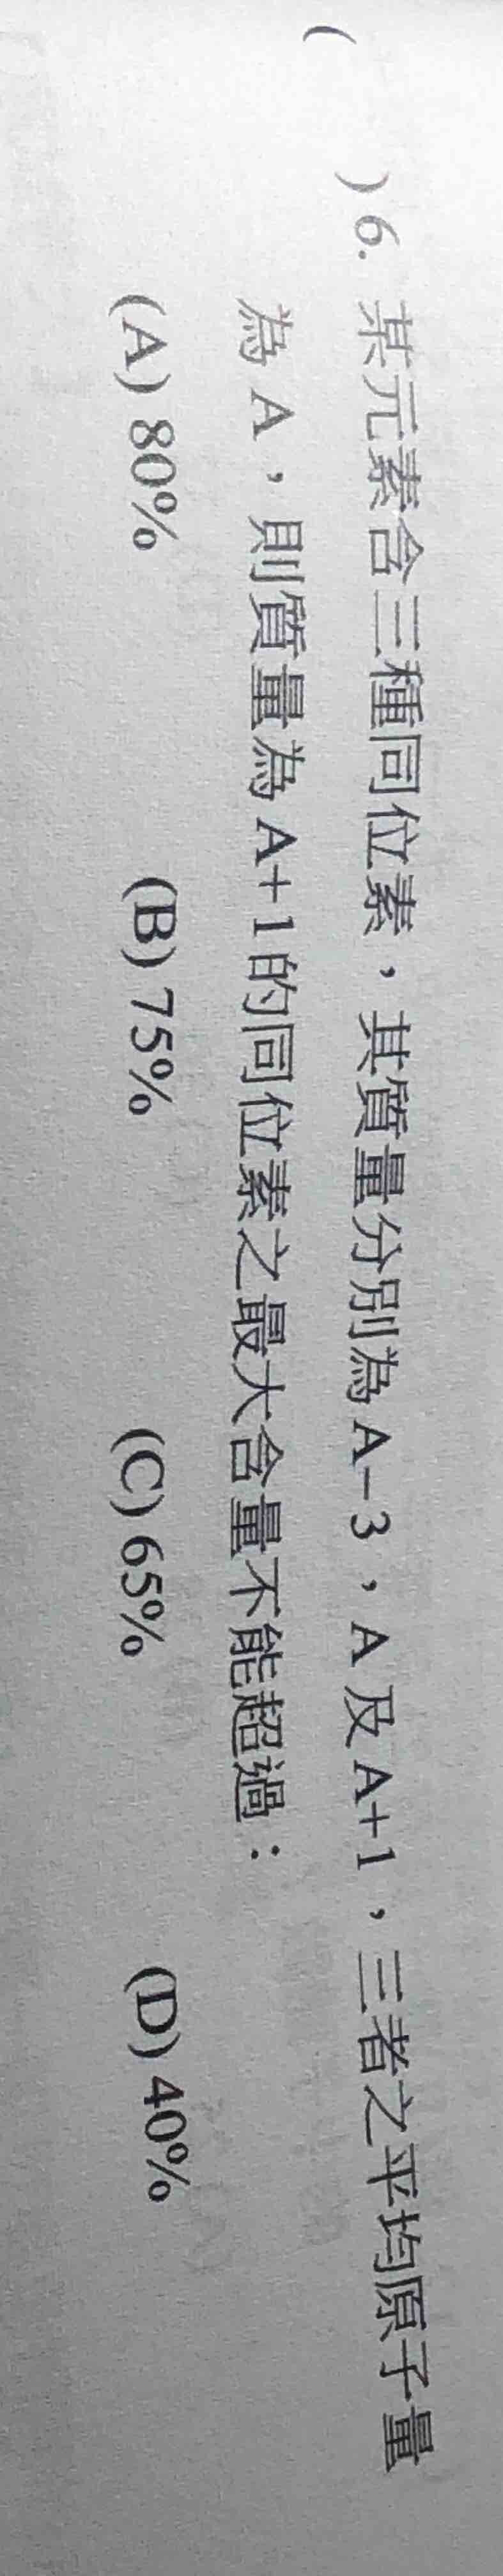 ( ) 6. 某元素含三種同位素，其質量分別為 A−3，A 及 A+1，三者之平均原子量
為 A，則質量為 A+1 的同位素之最大含量不能超過：
(A) 80% (B) 75% (C) 65% (D) 40%